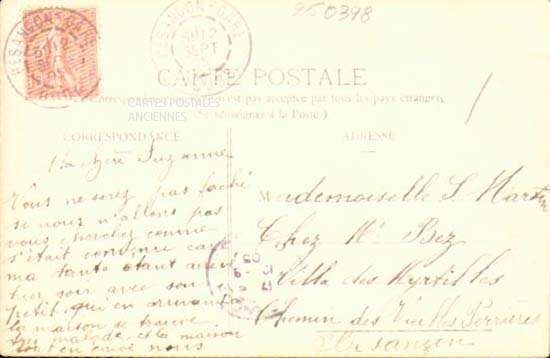 950398
BESANCON-GARE
BESANCON-GARE
12
SEPT
CARTE POSTALE
CARTES POSTALES
ANCIENNES
(La Corres est pas acceptée par tous les pays étrangers
Se renseigner à la Poste.)
CORRESPONDANCE
ADRESSE
Ma chère Suzanne
Vous ne serez pas fachée
si nous n'allons pas
vous chercher comme
s'était convenu car
ma tante étant
hier soir avec son
petit qui en arrivant à
la maison se trouve
malade et la maison
tout en nous
Mademoiselle S. Martin
Chez Mr Bez
Villa des Myrtilles
Chemin des Vieilles Perrières
Besançon